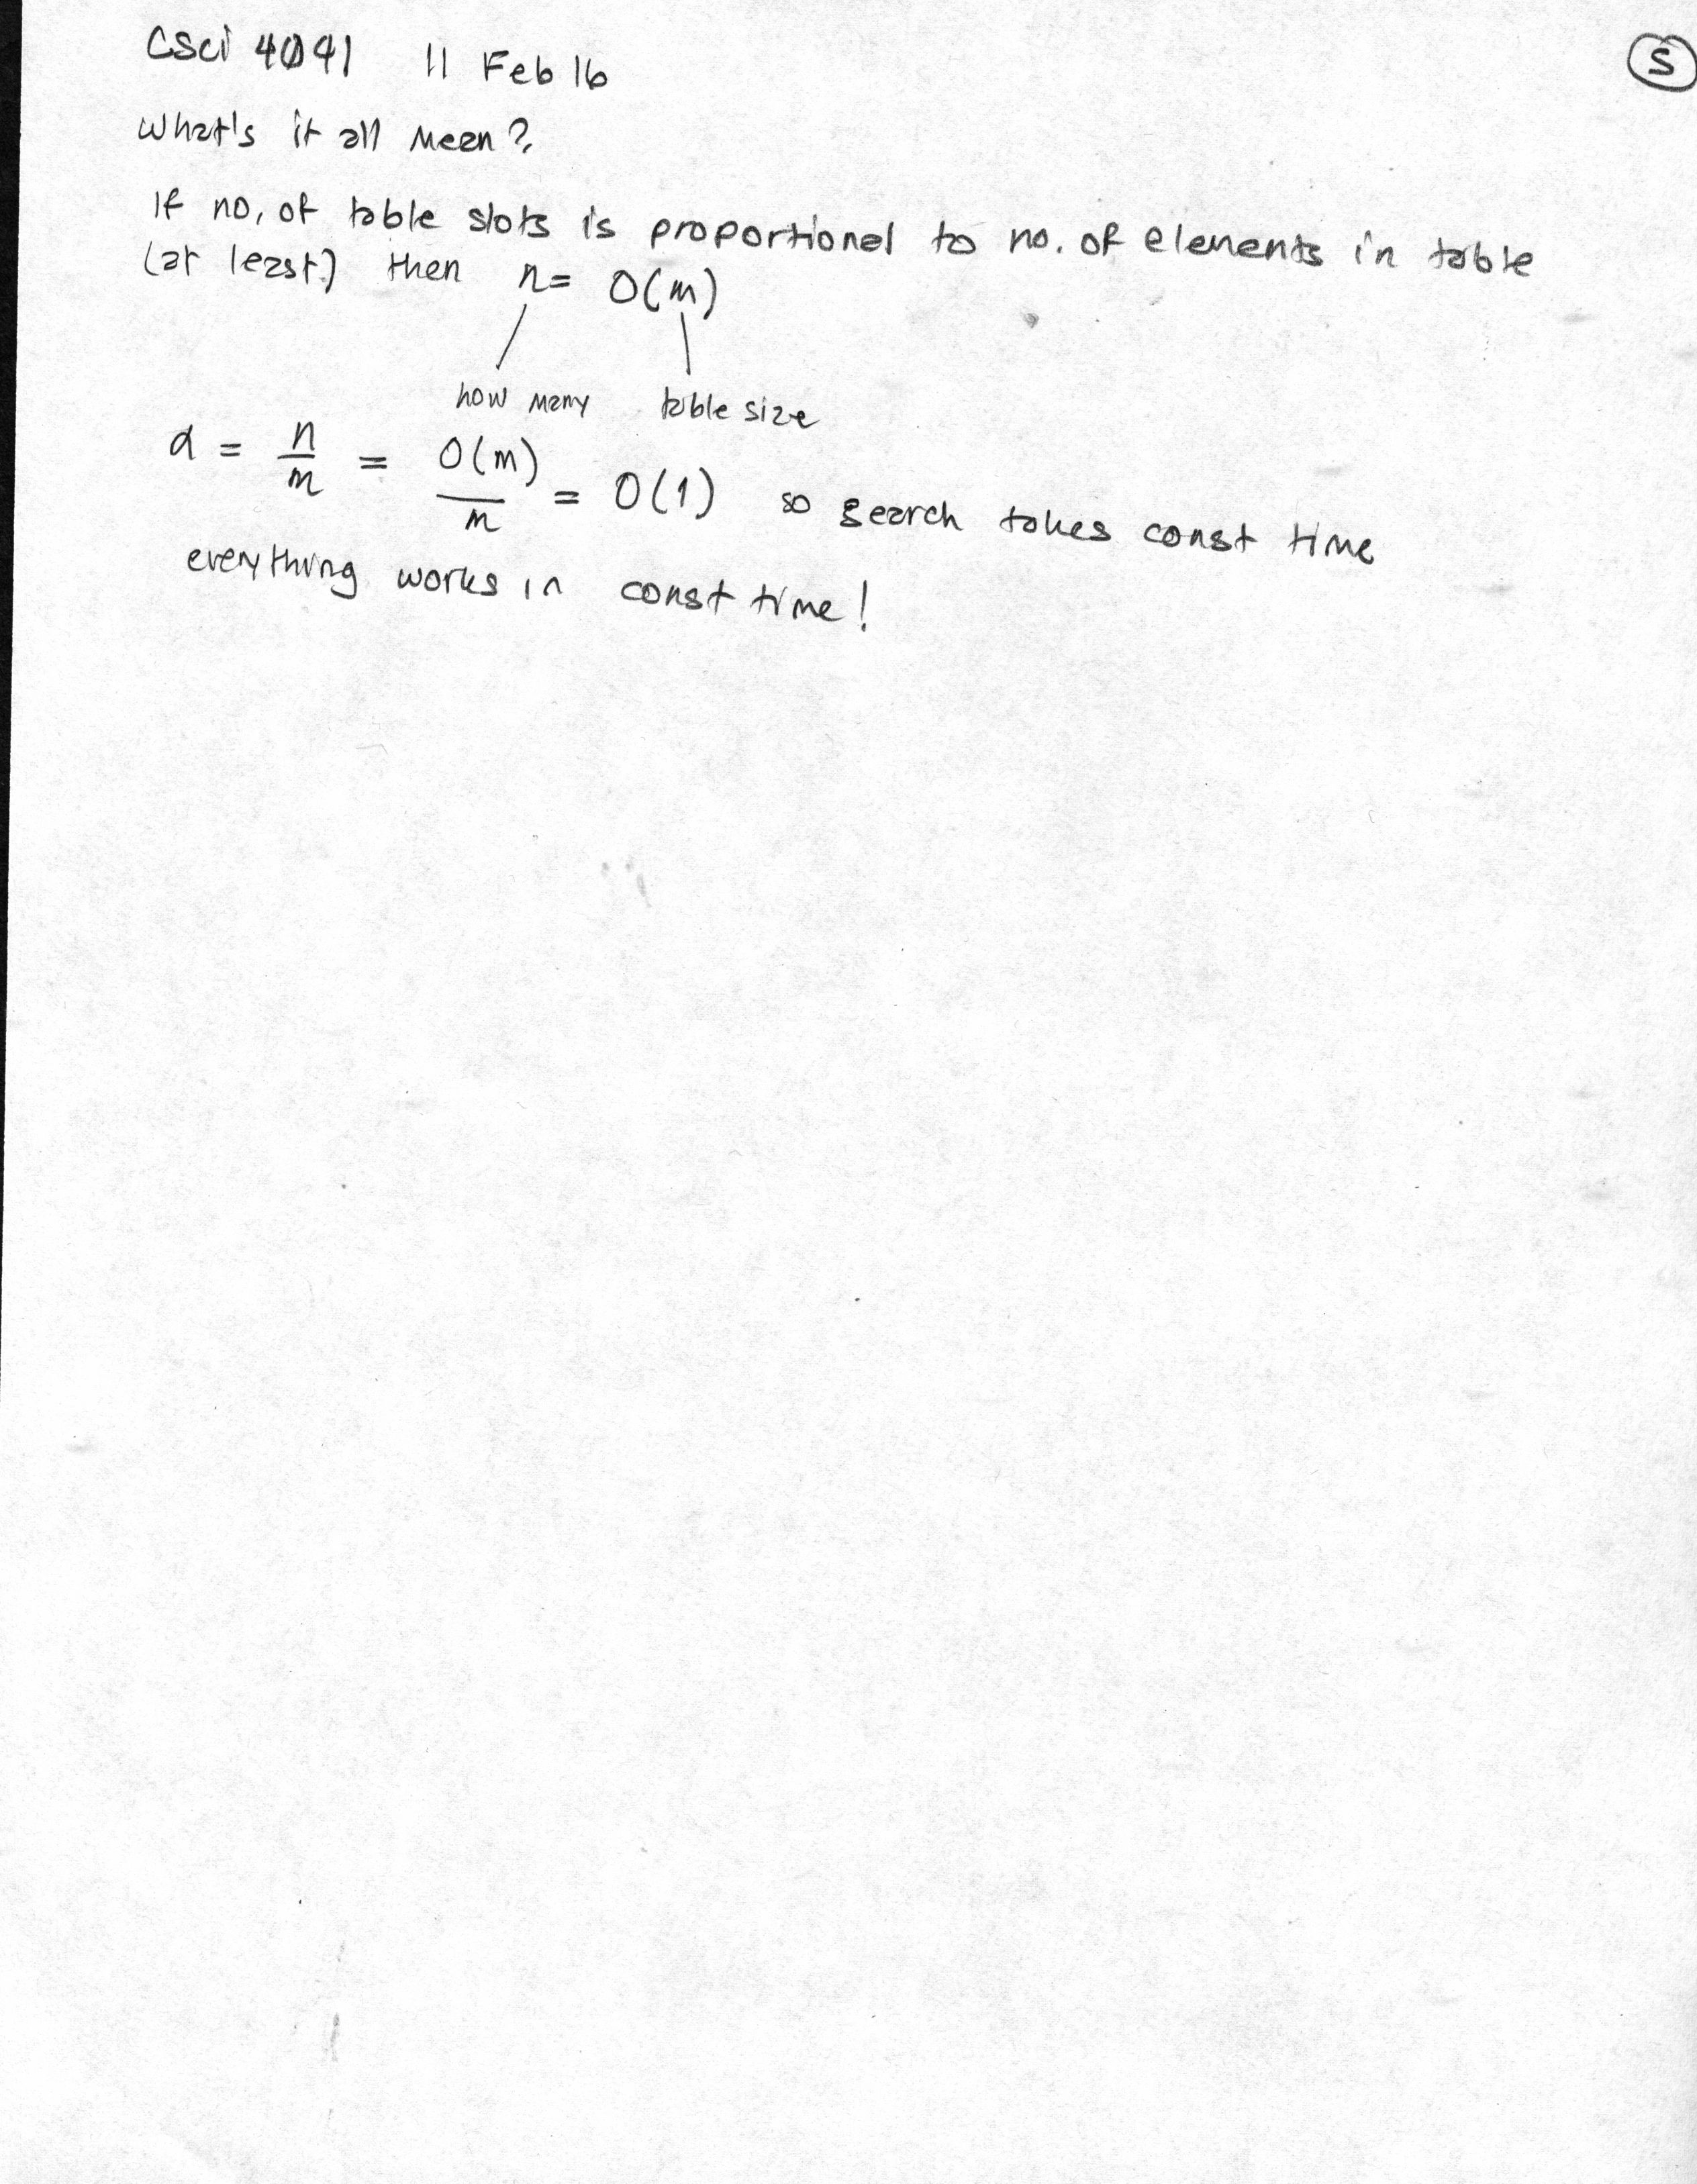 CSci 4041 11 Feb 16
5
What's it all mean?
If no. of table slots is proportional to no. of elements in table
(at least) then n = O(m)
how many table size
α = n/m = O(m)/m = O(1) so search takes const time
everything works in const time!